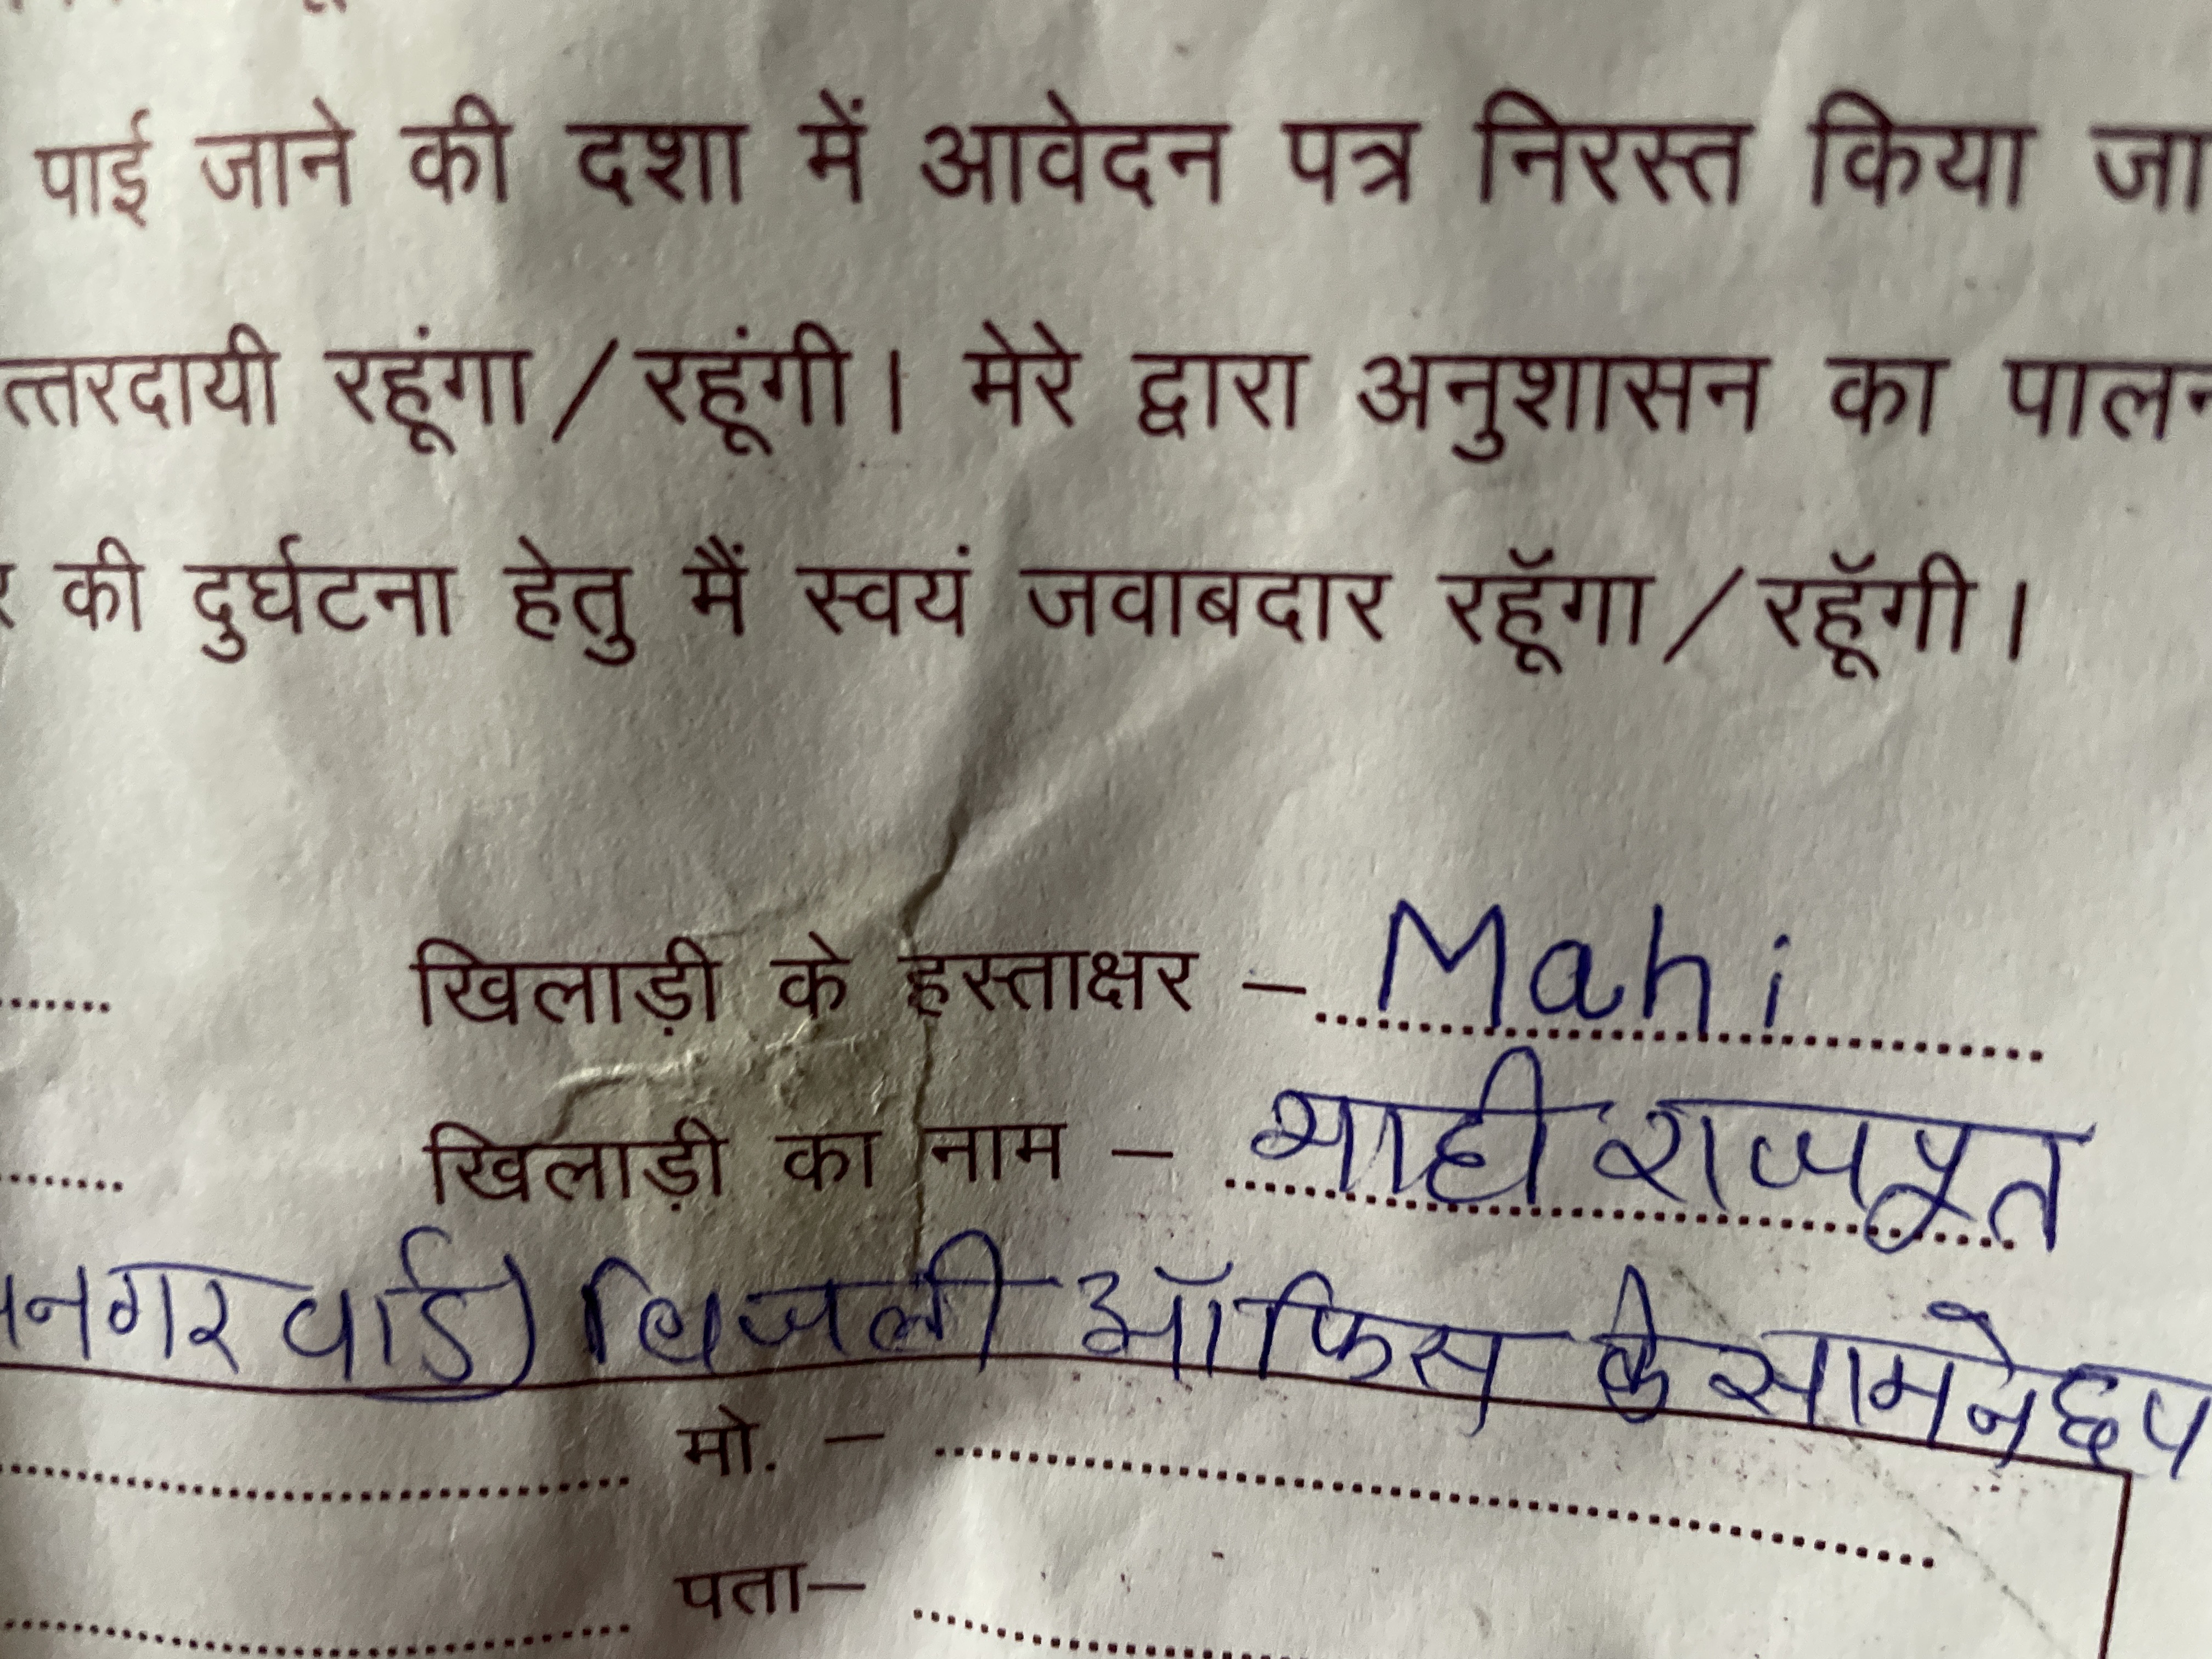 पाई जाने की दशा में आवेदन पत्र निरस्त किया जा
त्तरदायी रहूंगा/रहूंगी। मेरे द्वारा अनुशासन का पालन
की दुर्घटना हेतु मैं स्वयं जवाबदार रहूॅगा/रहूॅगी।
खिलाड़ी के हस्ताक्षर – Mahi
खिलाड़ी का नाम – माही राजपूत
नगर वार्ड) बिजली ऑफिस के सामने
मो. –
पता–